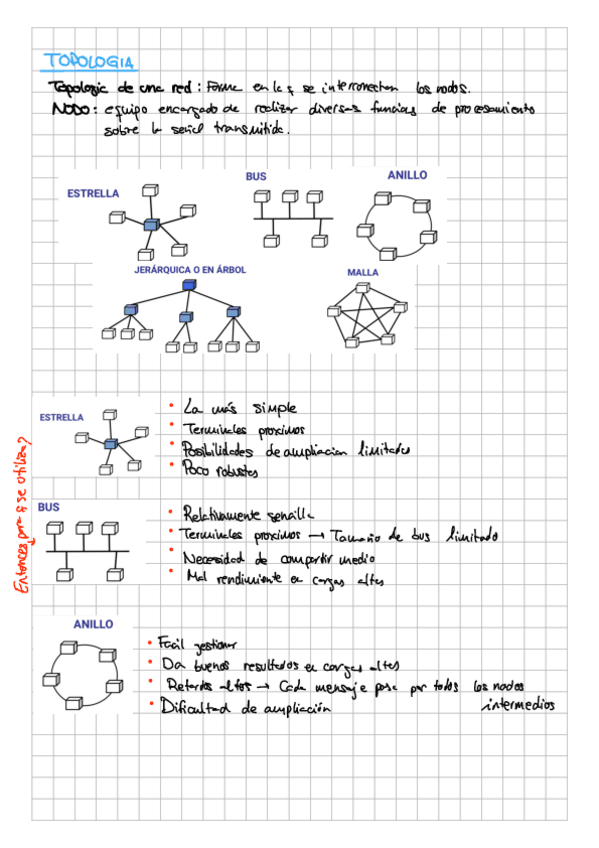 TOPOLOGIA
Topologia de una red: Forma en la q se interconectan los nodos.
NODO: equipo encargado de realizar diversas funciones de procesamiento
sobre la señal transmitida.
ESTRELLA
BUS
ANILLO
JERÁRQUICA O EN ÁRBOL
MALLA
Entonces porq se utiliza?
ESTRELLA
• La más simple
• Terminales proximos
• Posibilidades de ampliacion limitadas
• Poco robustas
BUS
• Relativamente sencilla
• Terminales proximos → Tamaño de bus limitado
• Necesidad de compartir medio
• Mal rendimiento en cargas altas
ANILLO
• Facil gestionar
• Da buenos resultados en cargas altas
• Retardos altos → Cada mensaje pasa por todos los nodos
intermedios
• Dificultad de ampliación